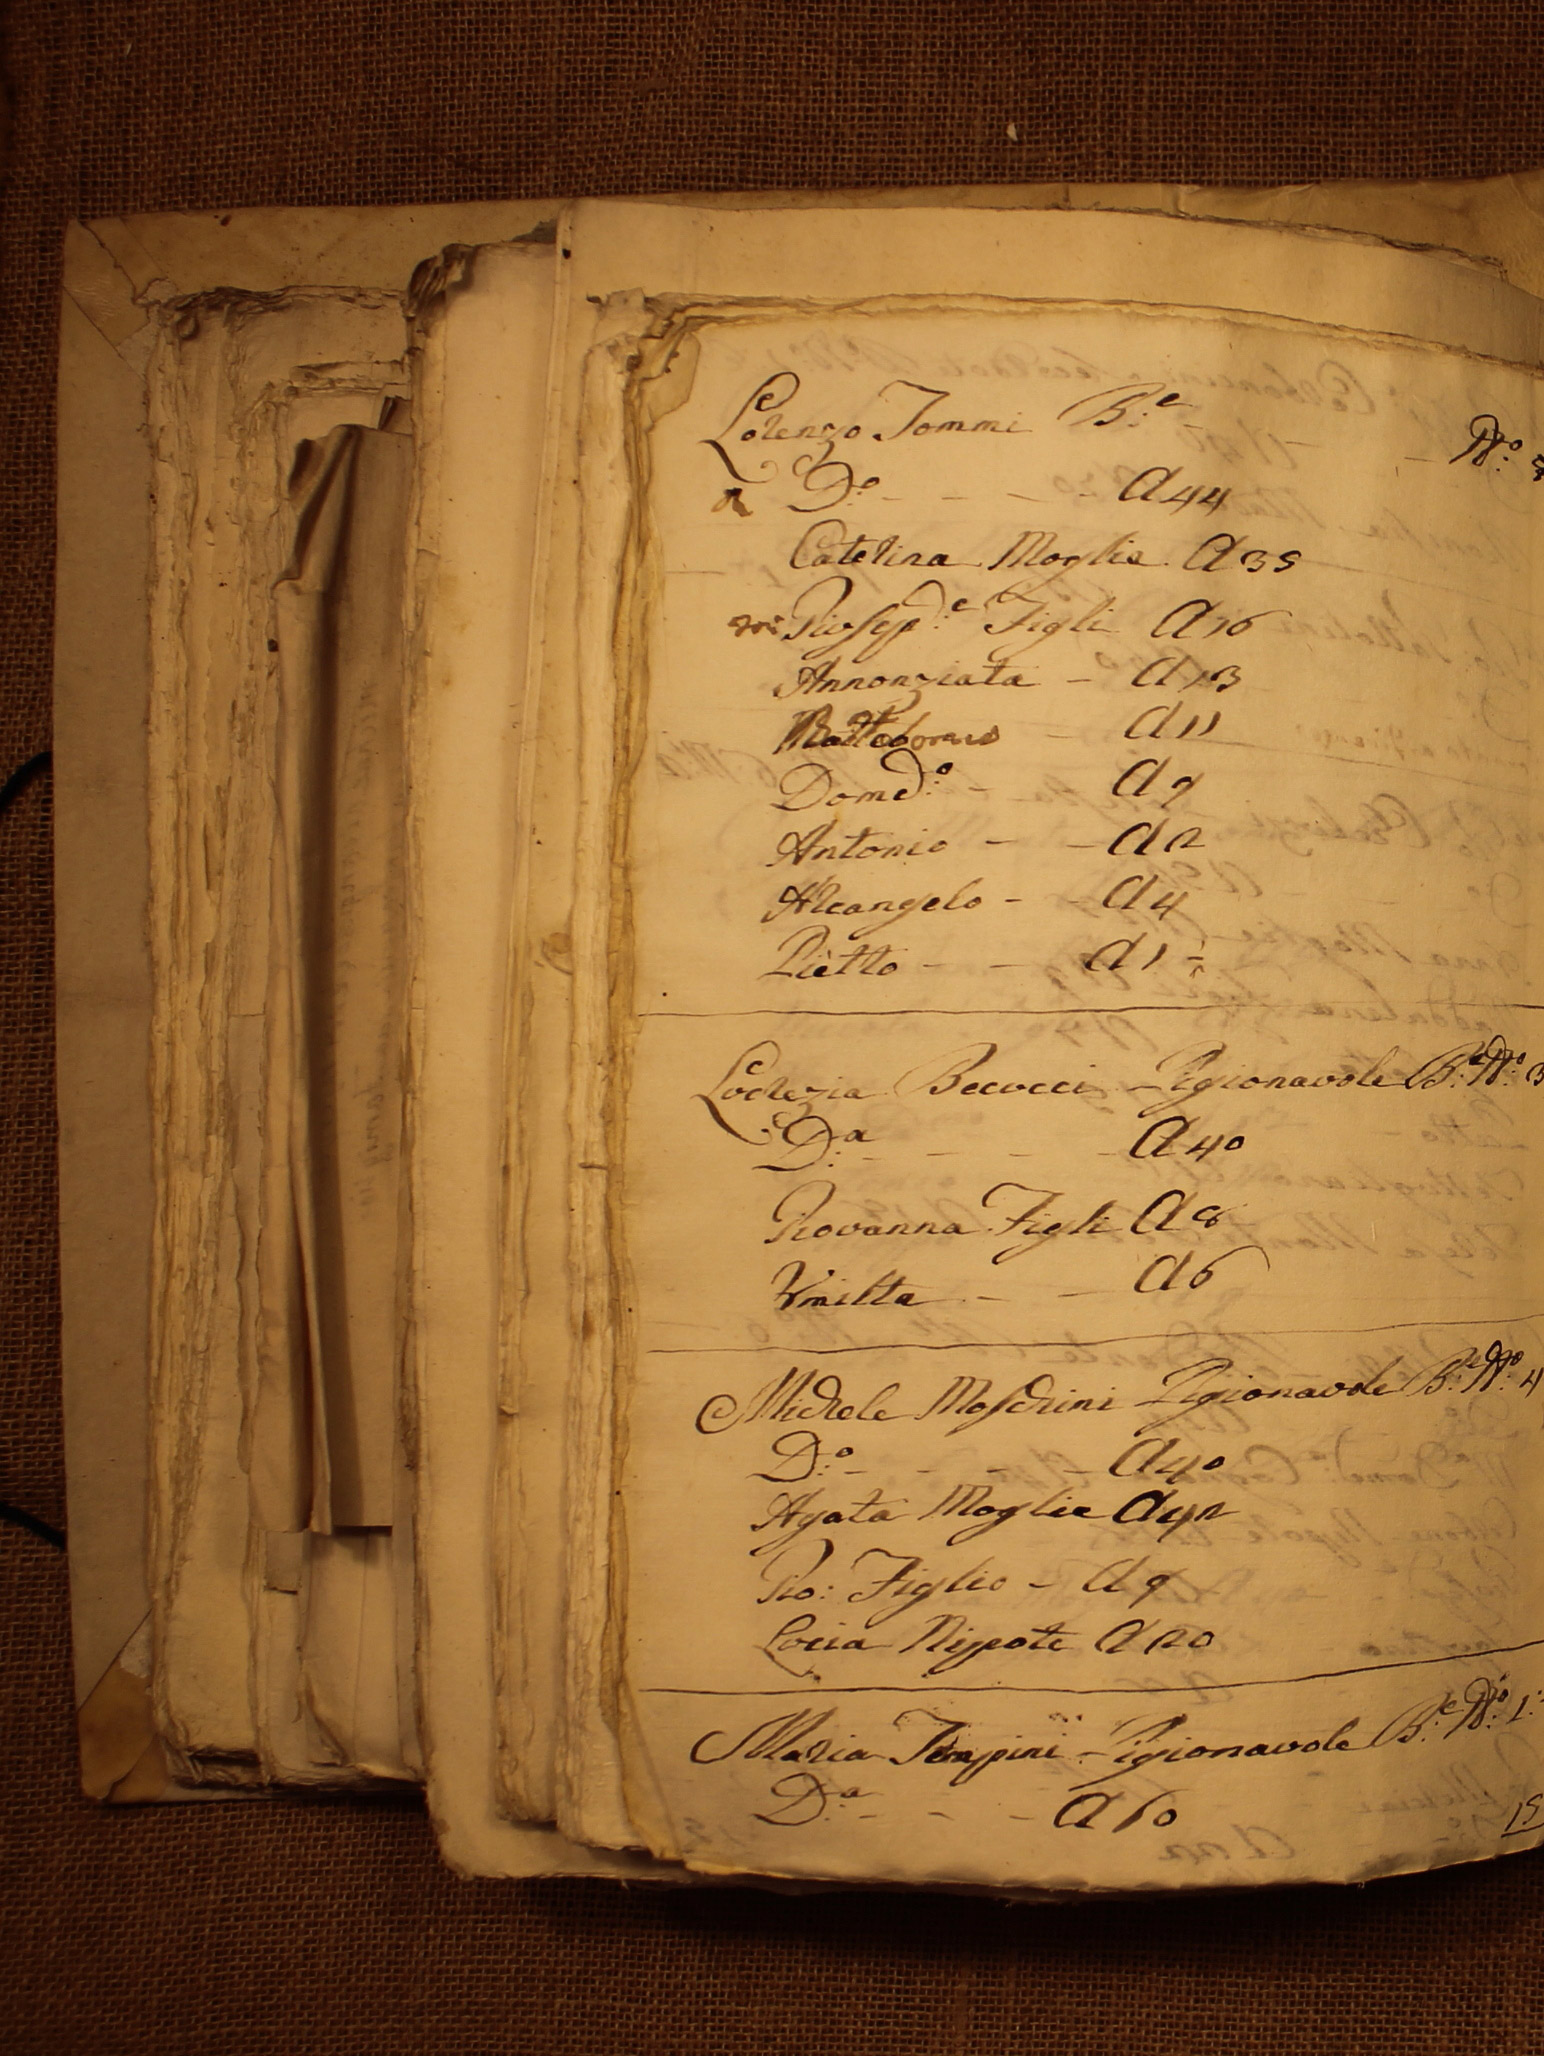 Lorenzo Tommi B:e N:o
D:o - - - - A 44
Caterina Moglie A 35
Giosep:e Figli A 16
Annonziata - A 13
A 11
Dom:o - A 9
Antonio - - A 2
Arcangelo - - A 4
Pietro - - A 1
Locrezia Becucci Pigionavole B:e N:o 3
D:a - - - - A 40
Giovanna Figli A 8
Umilta - - A 6
Michele Moschini Pigionavole B:e N:o 4
D:o - - - - A 40
Agata Moglie A 42
Gio: Figlio - A 9
Locia Nipote A 20
Maria Pigionavole B:e N:o 1
D:a - - - A 60
15